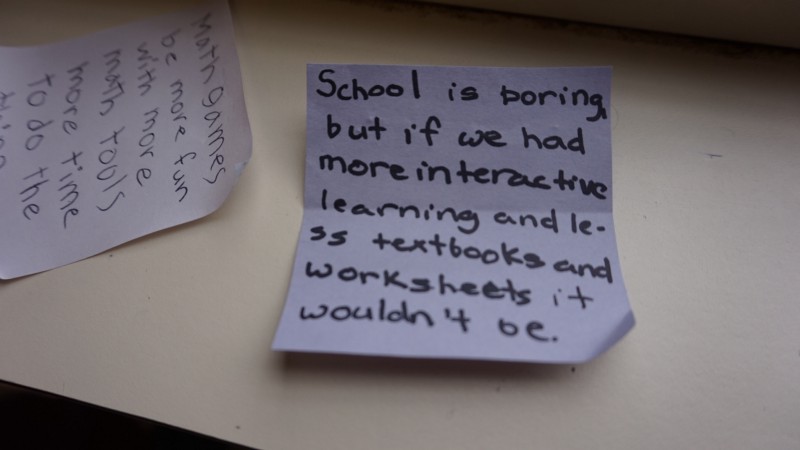 Math games
be more fun
with more
math tools
more time
to do the
School is boring,
but if we had
more interactive
learning and le-
ss textbooks and
worksheets it
wouldn't be.